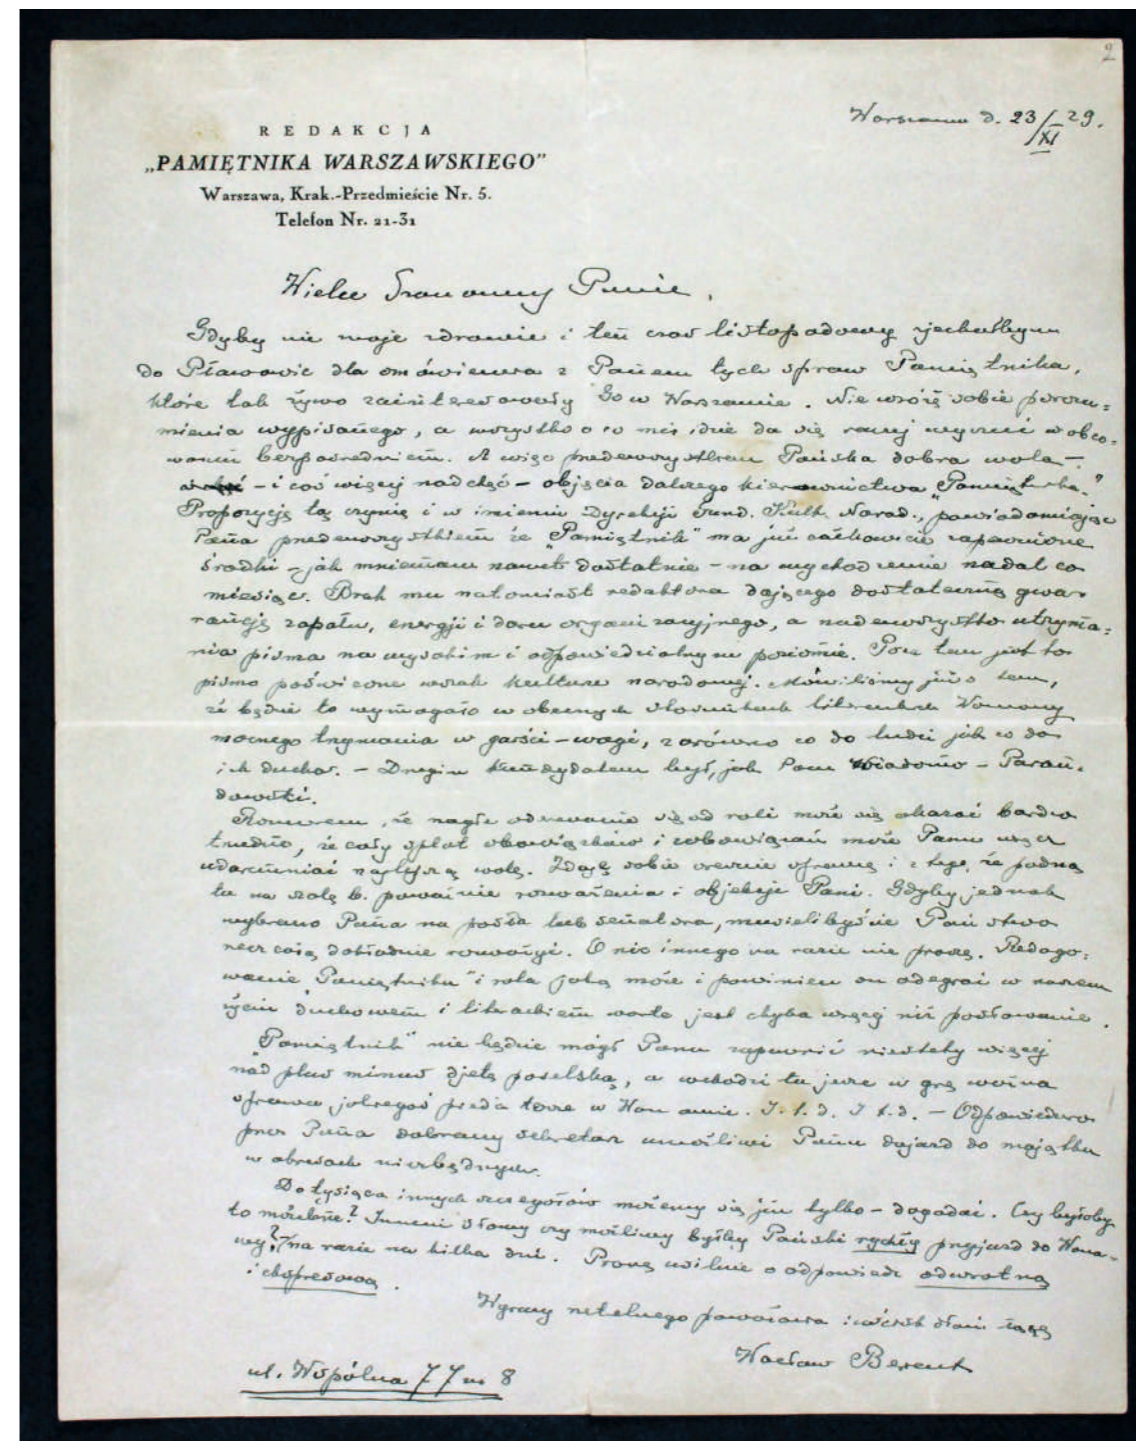 2
Warszawa d. 23/XI 29.
REDAKCJA
„PAMIĘTNIKA WARSZAWSKIEGO”
Warszawa, Krak.-Przedmieście Nr. 5.
Telefon Nr. 21-31
Wielce Szanowny Panie,
Gdyby nie moje zdrowie i ten czas listopadowy zjechałbym
do Pławowic dla omówienia z Panem tych spraw Pamiętnika,
które tak żywo zainteresowały Go w Warszawie. Nie wróżę sobie porozu-
mienia wypisanego, a wszystko o co mi idzie da się raczej wyczuć w obco-
waniu bezpośredniem. A więc przedewszystkiem Pańska dobra wola –
– i coś więcej nad chęć – objęcia dalszego kierownictwa „Pamiętnika.”
Propozycję tą czynię i w imieniu Dyrekcji Fund. Kult. Narod., powiadamiając
Pana przedewszystkiem że „Pamiętnik” ma już całkowicie zapewnione
środki – jak mniemam nawet dostatnie – na wychodzenie nadal co
miesiąc. Brak mu natomiast redaktora dającego dostateczną gwa-
rancję zapału, energji i daru organizacyjnego, a nadewszystko utrzyma-
nia pisma na wysokim i odpowiedzialnym poziomie. Poza tem jest to
pismo poświęcone wszak kulturze narodowej. Mówiliśmy już o tem,
że będzie to wymagało w obecnych stosunkach literackich Warszawy
mocnego trzymania w garści – wagi, zarówno co do ludzi jak co do
ich ducha. – Drugim kandydatem był, jak Panu wiadomo – Paran-
dowski.
Rozumiem, że nagłe odrywanie się od roli może się okazać bardzo
trudne, że cały splot obowiązków i zobowiązań może Panu wręcz
udaremniać najlepszą wolę. Zdaję sobie wreszcie sprawę i z tego, że padną
tu na szalę b. poważnie rozważenia i objekcje Pani. Gdyby jednak
wybrano Pana na posła lub senatora, musielibyście Państwo
rzecz całą dokładnie rozważyć. O nic innego na razie nie proszę. Redago-
wanie „Pamiętnika” i rola jaką może i powinien on odegrać w naszem
życiu duchowem i literackiem warte jest chyba więcej niż posłowanie.
„Pamiętnik” nie będzie mógł Panu zapewnić niestety więcej
nad plus minus djetę poselską, a wchodzi tu jeszcze w grę ważna
sprawa jakiegoś pieda terre w Warszawie. I.t.d. I t.d. – Odpowiednio
przez Pana dobrany sekretarz umożliwi Panu dojazd do majątku
w okresach niezbędnych.
Do tysiąca innych szczegółów możemy się już tylko – dogadać. Czy byłoby
to możebne? Innemi słowy czy możliwy byłby Pański rychły przyjazd do Warsza-
wy? na razie na kilka dni. Proszę usilnie o odpowiedź odwrotną
i ekspresową.
Wyrazy rzetelnego poważania i uścisk dłoni łączę
Wacław Berent
ul. Wspólna 77 m 8